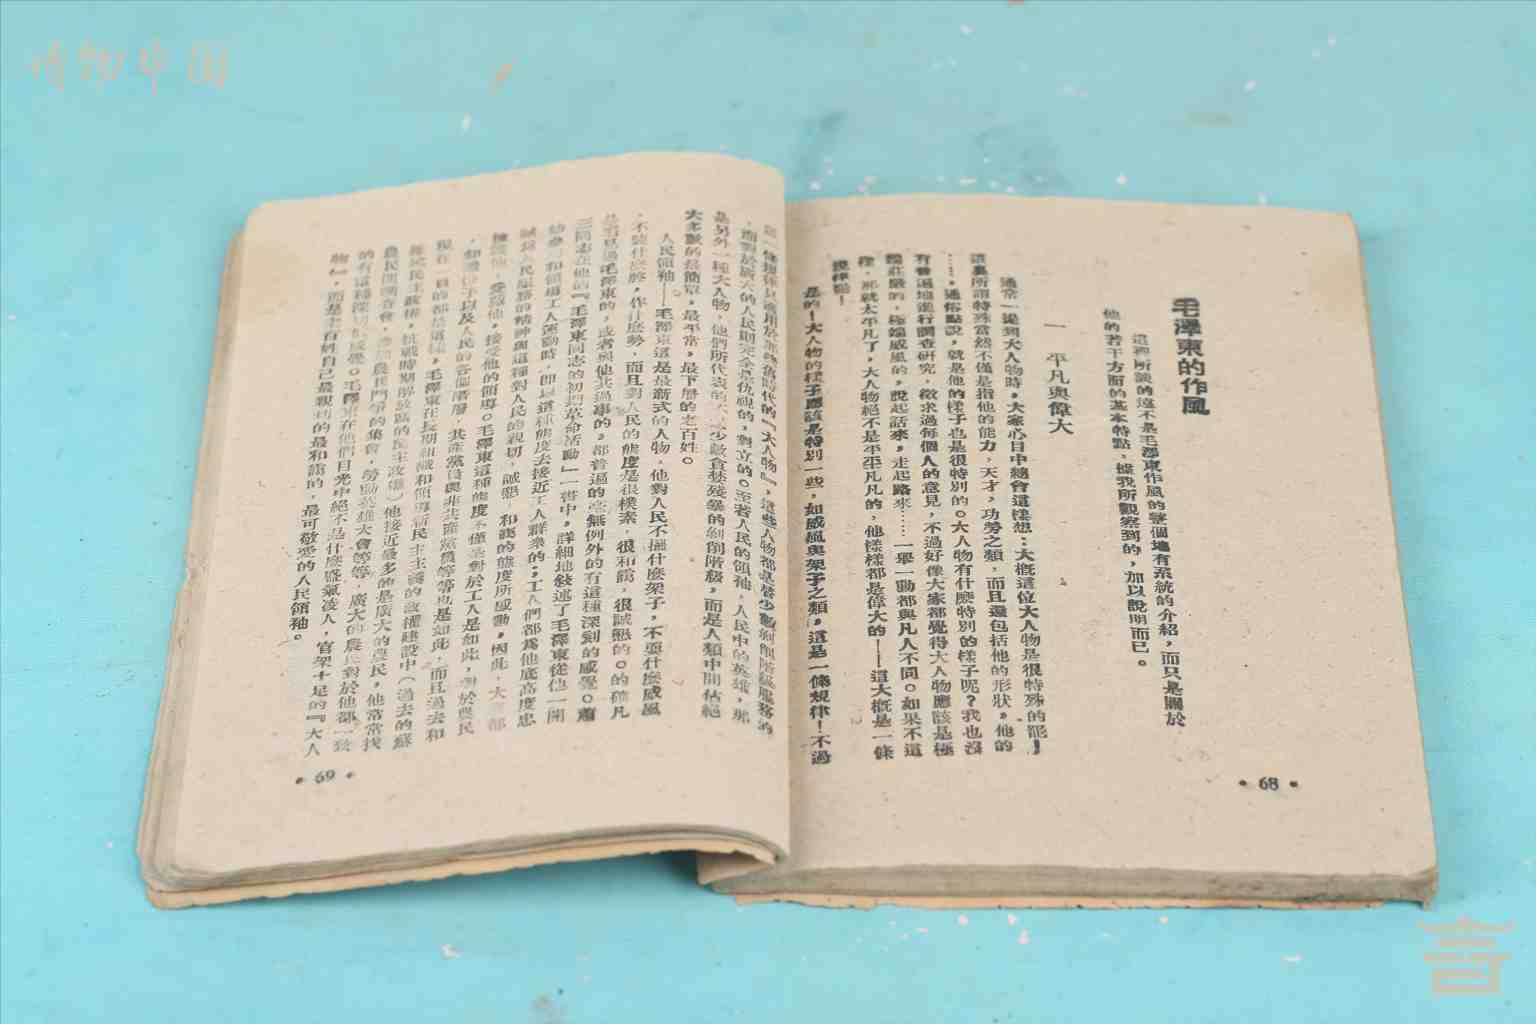 博物中国
毛澤東的作風
這裡所談的還不是毛澤東作風的整個地有系統的介紹，而只是關於
他的若干方面的基本特點，據我所觀察到的，加以說明而已。
一 平凡與偉大
通常一提到大人物時，大家心目中總會這樣想：大概這位大人物是很特殊的罷！
這裏所謂特殊當然不僅是指他的能力，天才，功勞之類，而且還包括他的形狀，他的
……，通俗點說，就是他的樣子也是很特別的。大人物有什麽特別的樣子呢？我也沒
有普遍地進行調查研究，徵求過每個人的意見，不過好像大家都覺得大人物應該是極
端莊嚴的，極端威風的，說起話來，走起路來……一舉一動都與凡人不同。如果不這
樣，那就太平凡了，大人物絕不是平平凡凡的，他樣樣都是偉大的——這大概是一條
規律罷！
是的！大人物的樣子應該是特別一些，如威風與架子之類，這是一條規律！不過
這一條規律只適用於那些舊時代的『大人物』，這些人物都是替少數剝削階級服務的
，而對於廣大的人民則完全是仇視的，對立的。至若人民的領袖，人民中的英雄，那
是另外一種大人物，他們所代表的不是少數貪婪殘暴的剝削階級，而是人類中間佔絕
大多數的最簡單，最平常，最下層的老百姓。
人民領袖——毛澤東這是最新式的人物，他對人民不擺什麽架子，不耍什麽威風
，不裝什麽腔，作什麽勢，而且對人民的態度是很樸素，很和藹，很誠懇的。的確凡
是看見過毛澤東的，或者與他共過事的，都普遍的毫無例外的有這種深刻的感覺。蕭
三同志在他的『毛澤東同志的初期革命活動』一書中，詳細地敍述了毛澤東從他一開
始參加和領導工人運動時，即以這種態度去接近工人群衆的；工人們都爲他底高度忠
誠爲人民服務的精神與這種對人民的親切，誠懇，和藹的態度所感動，因此，大家都
擁護他，愛戴他，接受他的領導。毛澤東這種態度不僅是對於工人是如此，對於農民
，知識份子以及人民的各個階層，共產黨員與非共產黨員等等也是如此，而且過去和
現在一貫的都是這樣。毛澤東在長期組織和領導新民主主義的政權建設中（過去的蘇
維埃民主政權，抗戰時期解放區的民主政權）他接近最多的是廣大的農民，他常常找
農民開調查會，參加農民鬥爭的集會，勞動英雄大會等等，廣大的農民對於他都一致
的有這種深切的感覺。毛澤東在他們目光中絕不是什麽盛氣凌人，官架十足的『大人
物』，而是老百姓自己最親切的最和藹的，最可敬愛的人民領袖。
• 68 •
• 69 •